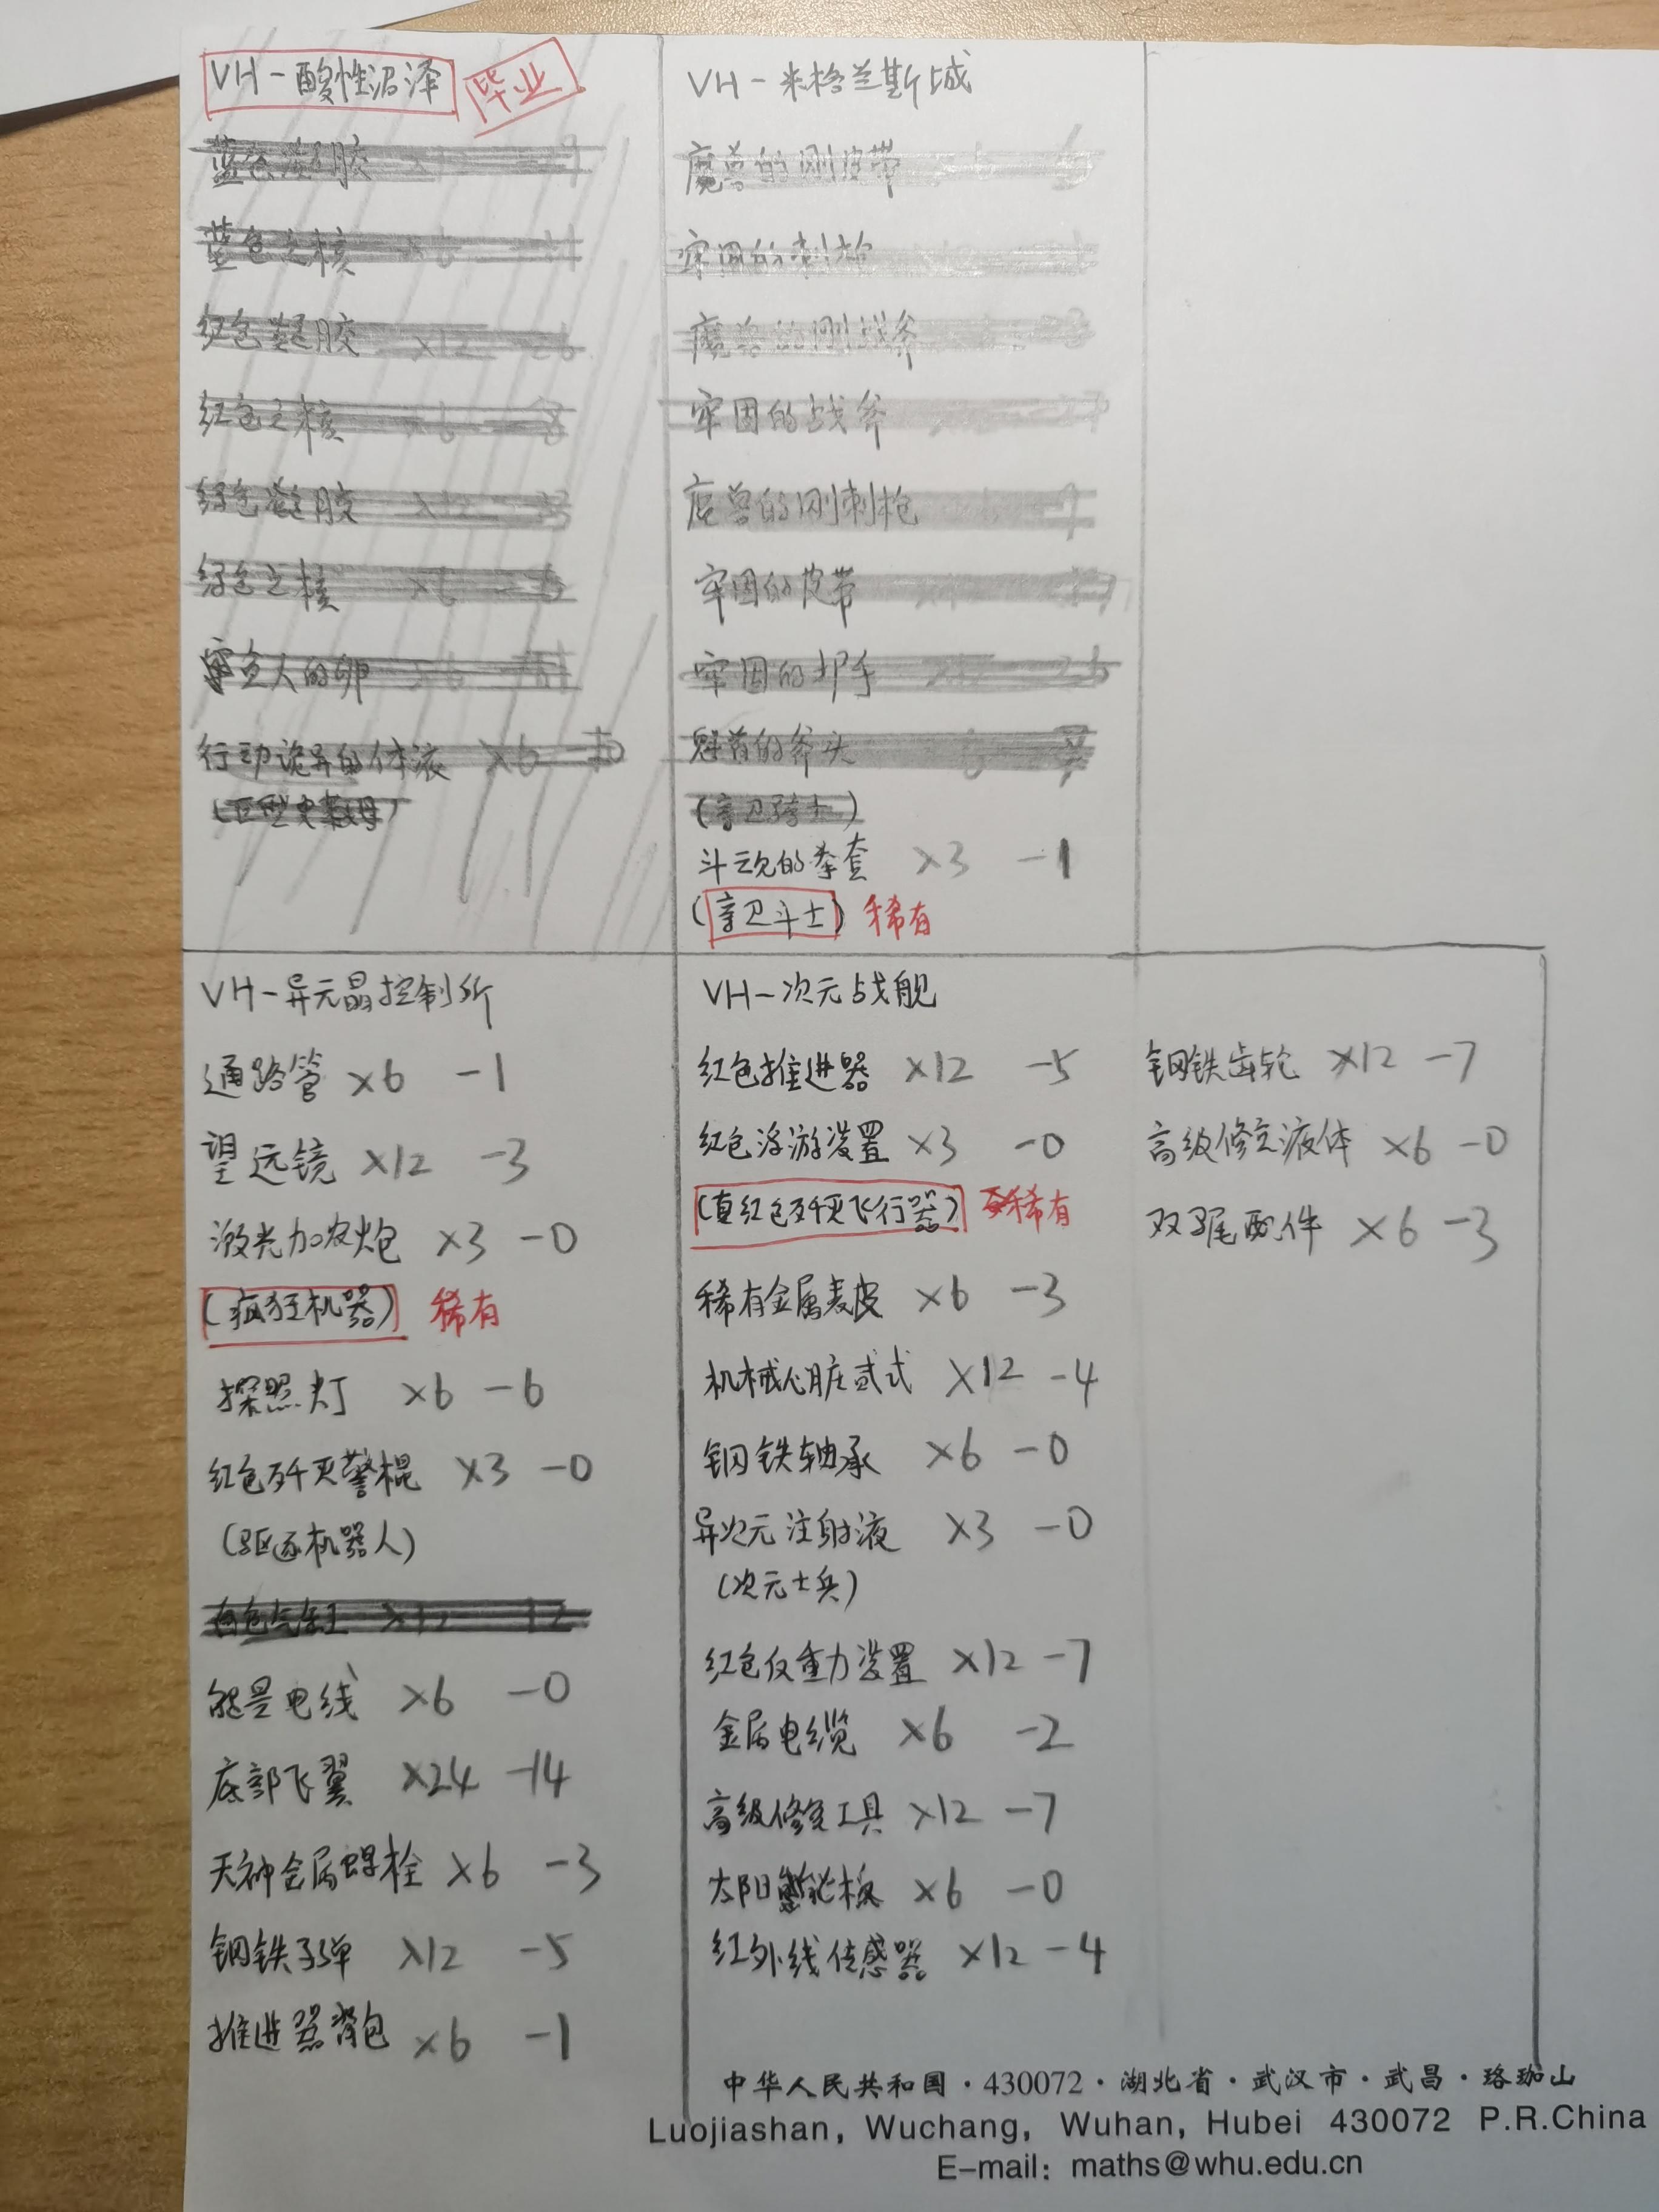 VH-酸性沼泽 毕业
蓝色凝胶
蓝色之核 x6
红色凝胶 x12
红色之核 x6 -8
绿色凝胶 x12
绿色之核 x6
人的卵 x6
行动诡异的体液 x6
(巨型史莱姆)
VH-米格兰斯城
魔兽的刚皮带
牢固的刺枪
魔兽的刚战斧
牢固的战斧
魔兽的刚刺枪
牢固的皮带
牢固的护手 x12 -26
魁首的斧头
(亲卫骑士)
斗魂的拳套 x3 -1
(亲卫斗士) 稀有
VH-异元晶控制所
通路管 x6 -1
望远镜 x12 -3
激光加农炮 x3 -0
(疯狂机器) 稀有
探照灯 x6 -6
红色歼灭警棍 x3 -0
(驱逐机器人)
白色气缸 x12 -12
能量电线 x6 -0
底部飞翼 x24 -14
天神金属螺栓 x6 -3
钢铁子弹 x12 -5
推进器背包 x6 -1
VH-次元战舰
红色推进器 x12 -5
红色浮游装置 x3 -0
(真红色歼灭飞行器) 稀有
稀有金属表皮 x6 -3
机械心脏贰式 x12 -4
钢铁轴承 x6 -0
异次元注射液 x3 -0
(次元士兵)
红色反重力装置 x12 -7
金属电缆 x6 -2
高级修复工具 x12 -7
太阳能板 x6 -0
红外线传感器 x12 -4
钢铁齿轮 x12 -7
高级修复液体 x6 -0
双尾配件 x6 -3
中华人民共和国·430072·湖北省·武汉市·武昌·珞珈山
Luojiashan, Wuchang, Wuhan, Hubei 430072 P.R.China
E-mail: maths@whu.edu.cn